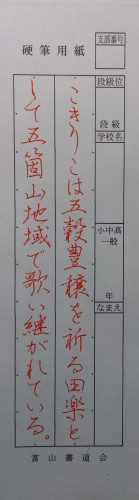 硬筆用紙
支部番号
段級位
段級
学校名
小中高
一般
年
なまえ
こきりこは五穀豊穣を祈る田楽と
して五箇山地域で歌い継がれている。
富山書道会